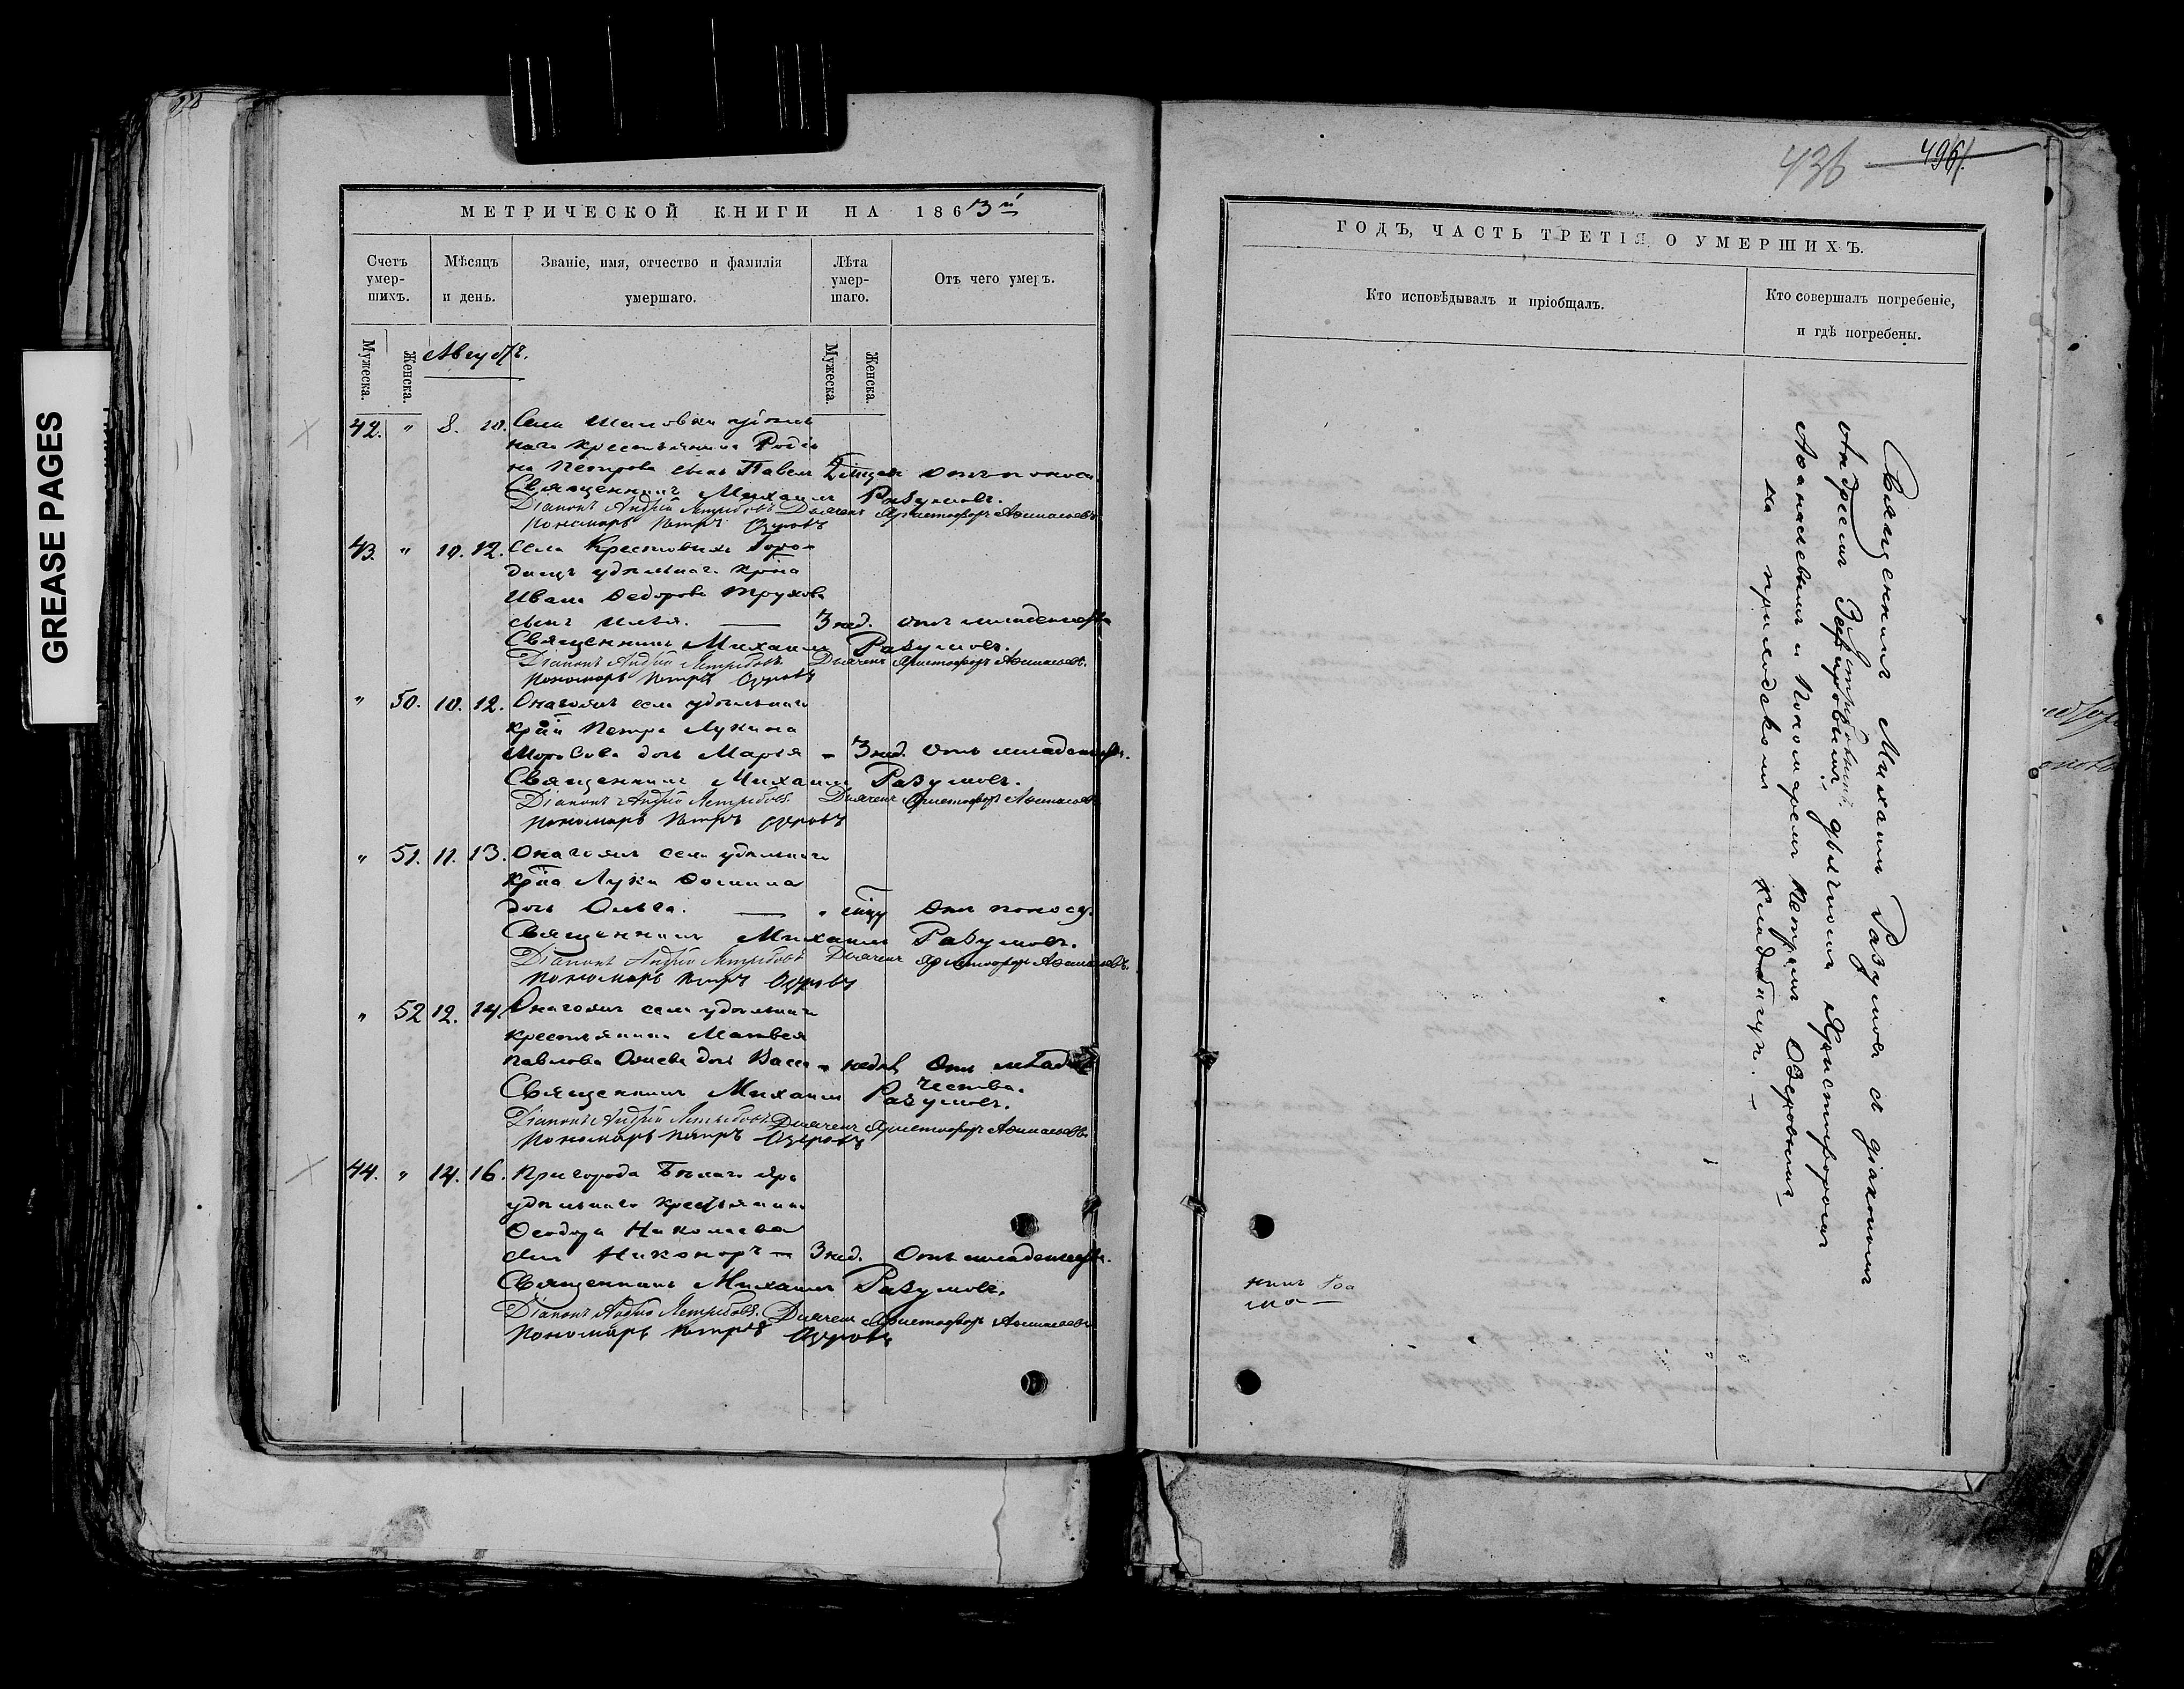 GREASE PAGES
МЕТРИЧЕСКОЙ КНИГИ НА 1863й
Счетъ умер-шихъ.
Мѣсяцъ и день.
Званіе, имя, отчество и фамилія умершаго.
Лѣта умер-шаго.
Отъ чего умеръ.
Мужеска.
Женска.
Августъ.
Мужеска.
Женска.
42. " 8. 10. Села
наго крестьянина
на Петрова сынъ Павелъ отъ поноса
Священникъ Михаилъ Разумовъ.
Діаконъ Андрей Ястребовъ Дьячекъ Христофоръ Аѳанасьевъ
Пономарь Петръ Озеровъ
43. " 10. 12. Села Крестовыхъ Горо-
дищъ удѣльнаго крѣна
Ивана Ѳедорова Трухова
сынъ Илья. — 3 нед. отъ младенчества
Священникъ Михаилъ Разумовъ.
Діаконъ Андрей Ястребовъ Дьячекъ Христофоръ Аѳанасьевъ.
Пономарь Петръ Озеровъ
" 50. 10. 12. Онагожъ села удѣльнаго
Петра Лукина
Морозова дочь Марья - 3 нед. отъ младенчества.
Священникъ Михаилъ Разумовъ.
Діаконъ Андрей Ястребовъ Дьячекъ Христофоръ Аѳанасьевъ
Пономарь Петръ Озеровъ
" 51. 11. 13. Онагожъ села удѣльнаго
Луки Ѳомина
дочь Ольга. — " отъ поносу.
Священникъ Михаилъ Разумовъ.
Діаконъ Андрей Ястребовъ Дьячекъ Христофоръ Аѳанасьевъ.
Пономарь Петръ Озеровъ
" 52 12. 14. Онагожъ села удѣльнаго
крестьянина Матвея
Павлова дочь " отъ младен-
чества.
Священникъ Михаилъ Разумовъ.
Діаконъ Андрей Ястребовъ Дьячекъ Христофоръ Аѳанасьевъ.
Пономарь Петръ Озеровъ
44. " 14. 16. Пригорода Бѣлаго Яра
удѣльнаго крестьянина
Ѳеодора Николаева
сынъ Никоноръ — 3 нед. Отъ младенчества.
Священникъ Михаилъ Разумовъ.
Діаконъ Андрей Ястребовъ. Дьячекъ Христофоръ Аѳанасьевъ
Пономарь Петръ Озеровъ
436
ГОДЪ, ЧАСТЬ ТРЕТІЯ О УМЕРШИХЪ.
Кто исповѣдывалъ и пріобщалъ.
Кто совершалъ погребеніе, и гдѣ погребены.
Священникъ Михаилъ Разумовъ съ діакономъ
Андреемъ Ястребовымъ, дьячкомъ Христофоромъ
Аѳанасьевымъ и Пономаремъ Петромъ Озеровымъ
на приходскомъ кладбищѣ. —